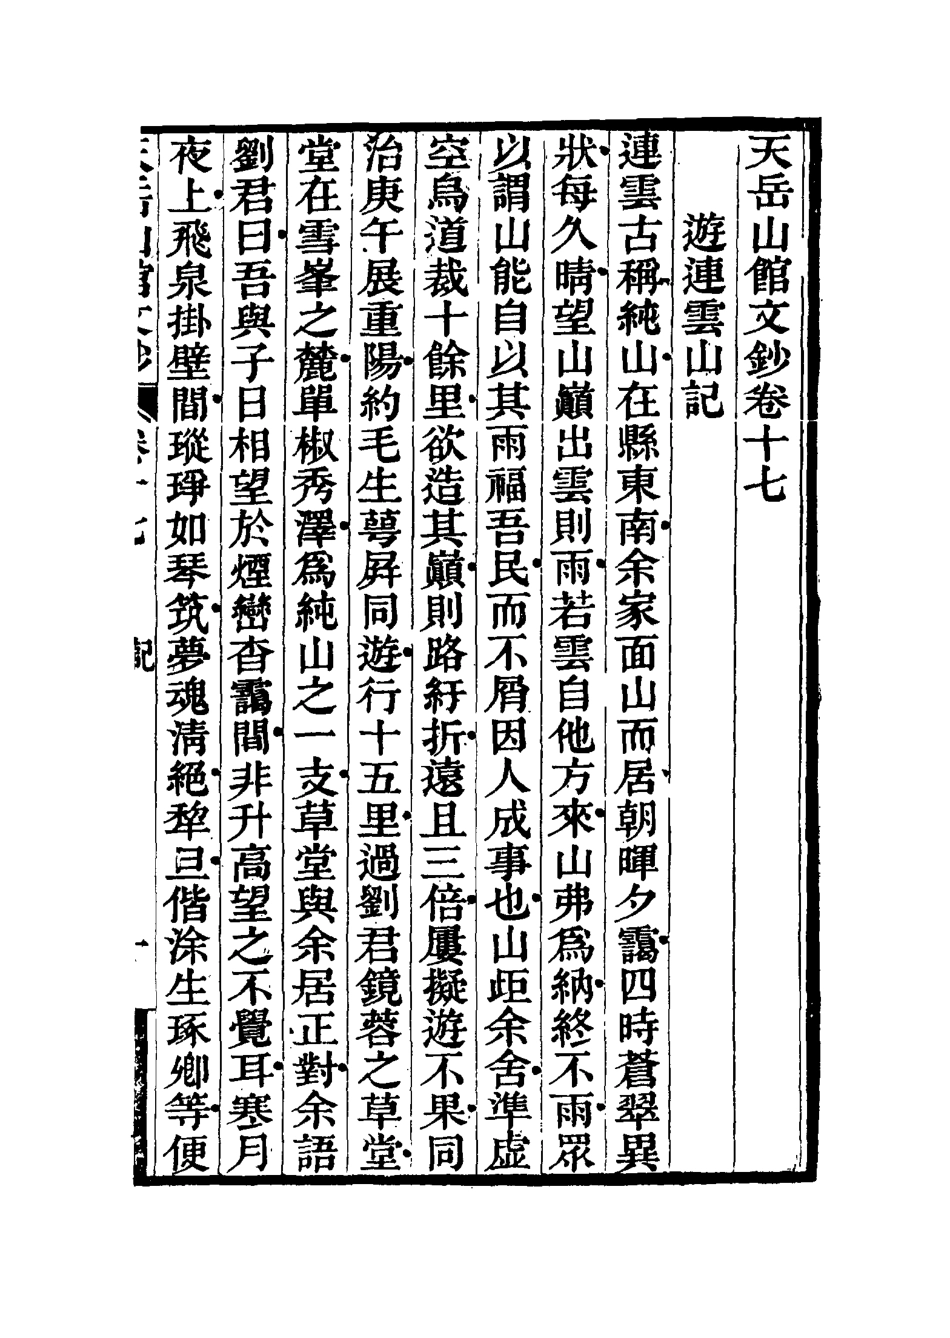 天岳山館文鈔卷十七
遊連雲山記
連雲古稱純山在縣東南余家面山而居朝暉夕靄四時蒼翠異
狀每久晴望山巔出雲則雨若雲自他方來山弗爲納終不雨眾
以謂山能自以其雨福吾民而不屑因人成事也山歫余舍準虛
空鳥道裁十餘里欲造其巔則路紆折遠且三倍屢擬遊不果同
治庚午展重陽約毛生萼屏同遊行十五里過劉君鏡蓉之草堂
堂在雪峯之麓單椒秀澤爲純山之一支草堂與余居正對余語
劉君曰吾與子日相望於煙巒杳靄間非升高望之不覺耳寒月
夜上飛泉掛壁間瑽琤如琴筑夢魂淸絕犂旦偕涂生琢卿等便
天岳山館文鈔 卷十七 記 一